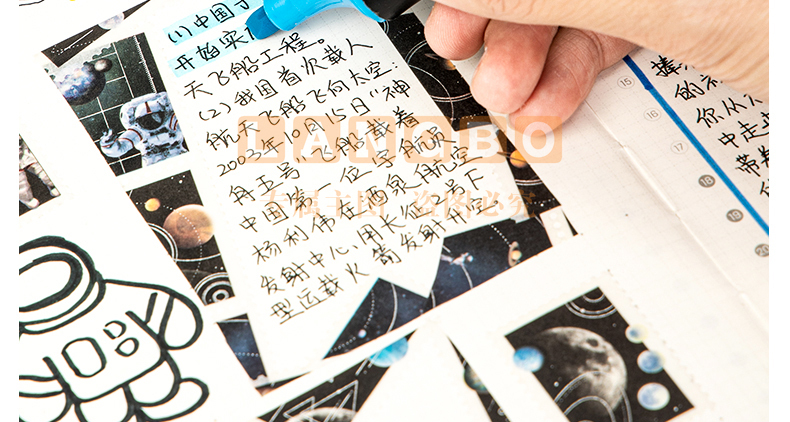 (1)中国于
开始实
天飞船工程。
(2)我国首次载人
航天飞船飞向太空:
2003年10月15日"神
舟五号"飞船载着
中国第一位宇航员
杨利伟在酒泉航空
发射中心,用长征2号F
型运载火箭发射升
LANGBO
专属主图 盗图必究
的
你从
中走
带
15
16
17
18
19
20